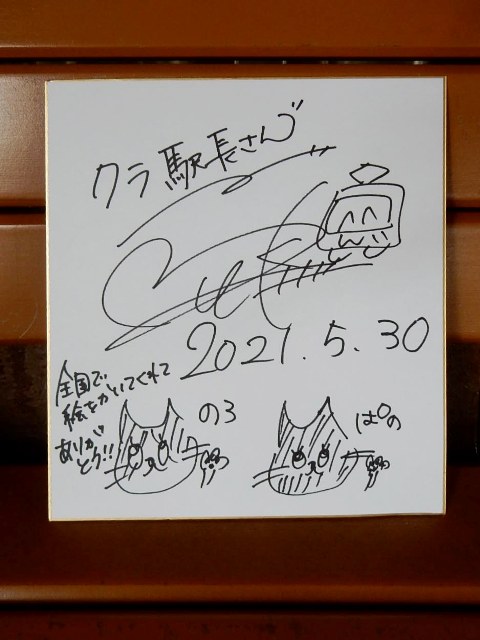 クラ駅長さんへ
2021.5.30
全国で
絵をかいてくれて
ありが
とう!!
のろ
ぱの